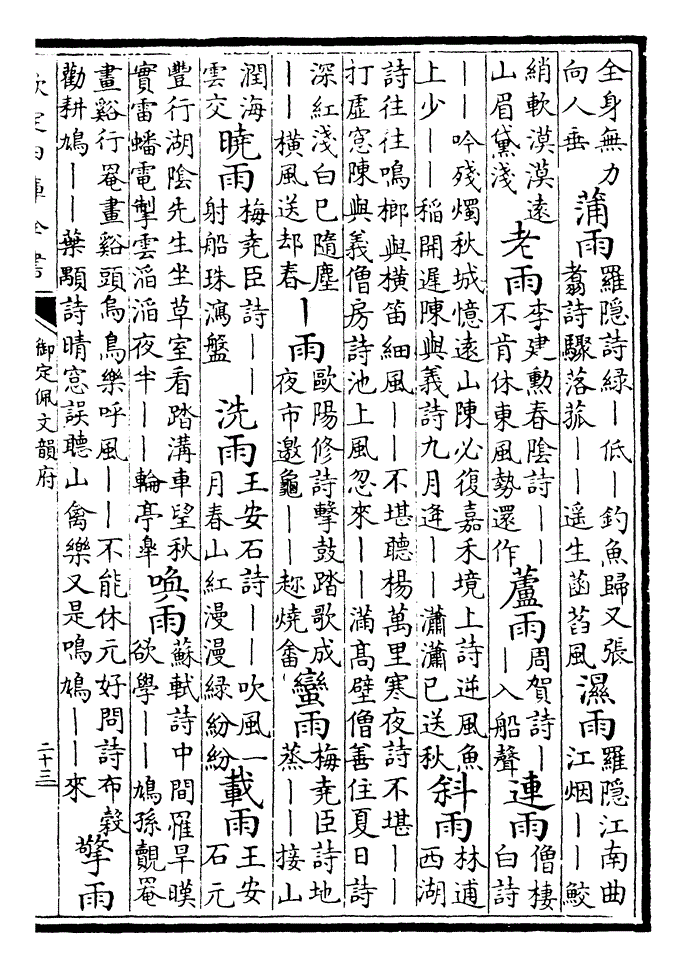 全身無力
向人垂
蒲雨
羅隱詩綠丨低丨釣魚歸又張
翥詩驟落菰丨丨遥生菡萏風
濕雨
羅隱江南曲
江烟丨丨鮫
綃軟漠漠遠
山眉黛淺
老雨
李建勳春陰詩丨丨
不肯休東風勢還作
蘆雨
周賀詩丨
丨入船聲
連雨
僧棲
白詩
丨丨吟殘燭秋城憶遠山陳必復嘉禾境上詩逆風魚
上少丨丨稻開遲陳與義詩九月逢丨丨瀟瀟已送秋
斜雨
林逋
西湖
詩往往鳴榔與横笛細風丨丨不堪聽楊萬里寒夜詩不堪丨丨
打虛窓陳與義僧房詩池上風忽來丨丨滿髙壁僧善住夏日詩
深紅淺白已隨塵
丨丨横風送却春
丨雨
歐陽修詩擊鼓踏歌成
夜市邀龜丨丨趂燒畬
蠻雨
梅堯臣詩地
蒸丨丨接山
潤海
雲交
曉雨
梅堯臣詩丨丨
射船珠瀉盤
洗雨
王安石詩丨丨吹風一
月春山紅漫漫綠紛紛
載雨
王安
石元
豐行湖陰先生坐草室看踏溝車望秋
實雷蟠電掣雲滔滔夜半丨丨輸亭臯
喚雨
蘇軾詩中間罹旱暵
欲學丨丨鳩孫覿罨
畫谿行罨畫谿頭烏鳥樂呼風丨丨不能休元好問詩布榖
勸耕鳩丨丨葉顒詩晴窓誤聽山禽樂又是鳴鳩丨丨來
擎雨
欽定四庫全書
御定佩文韻府
二十三